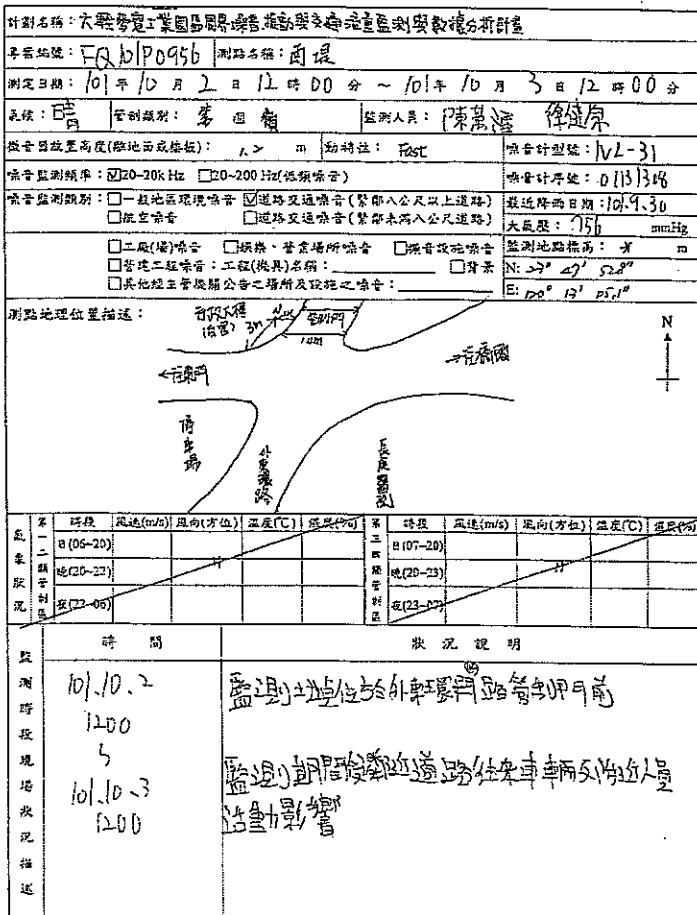 計劃名稱：六輕麥寮工業園區周界噪音振動與交通流量監測與數據分析計畫
專案編號：FQ101P0956 測站名稱：西堤
測定日期：101年10月2日12時00分～101年10月3日12時00分
天候：晴 管制類別：第四類 監測人員：
微音器放置高度(離地面或樓板)：1.2 m 動特性：Fast 噪音計型號：NL-31
噪音監測頻率：☑20-20k Hz □20-200 Hz(低頻噪音) 噪音計序號：01131308
噪音監測類別：□一般地區環境噪音 ☑道路交通噪音(緊鄰八公尺以上道路) 最近降雨日期：101.9.30
□航空噪音 □道路交通噪音(緊鄰未滿八公尺道路) 大氣壓：756 mmHg
□工廠(場)噪音 □娛樂、營業場所噪音 □擴音設施噪音 監測地點標高：* m
□營建工程噪音：工程(機具)名稱： □背景 N: 23° 47' 52.8"
□其他經主管機關公告之場所及設施之噪音： E: 120° 13' 05.1"
測點地理位置描述：
行政大樓
3m
14m
N
停車場
外環路
長庚醫院
氣象狀況
第一二類管制區 時段 風速(m/s) 風向(方位) 溫度(℃) 濕度(%) 第三四類管制區 時段 風速(m/s) 風向(方位) 溫度(℃) 濕度(%)
日(06-20) 日(07-20)
晚(20-22) 晚(20-23)
夜(22-06) 夜(23-07)
監測時段現場狀況描述
時間 狀況說明
101.10.2 監測地點位於外環路管制門前
1200
101.10.3 監測期間受鄰近道路往來車輛及附近人員
1200 活動影響